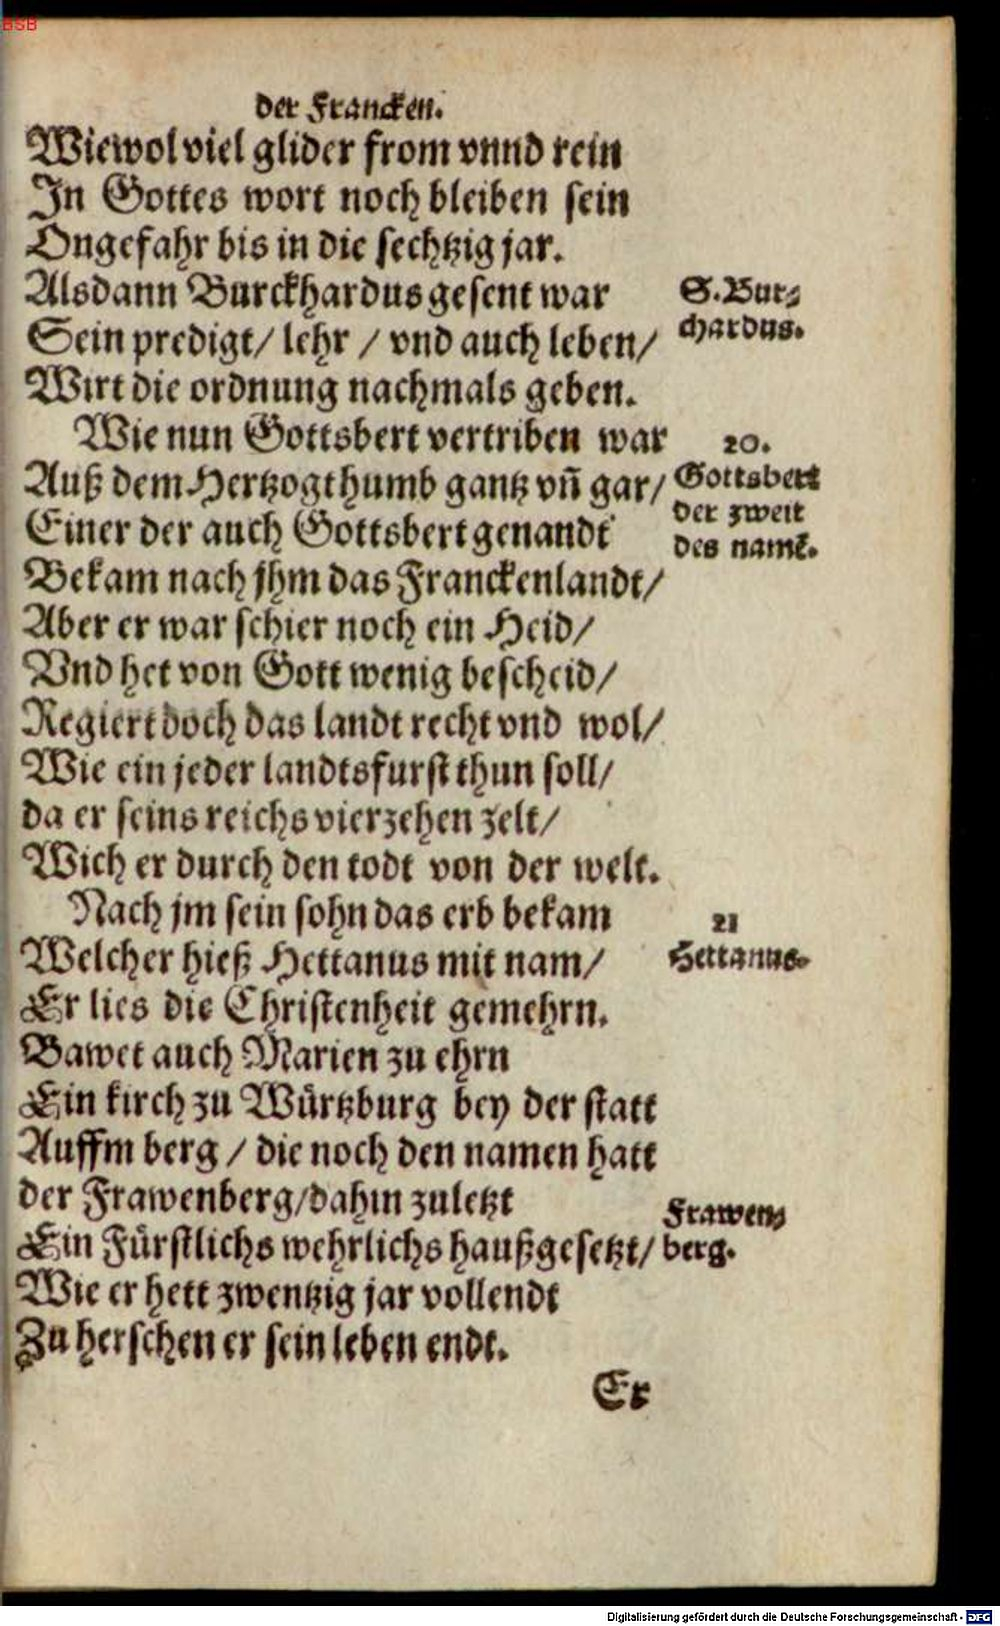 BSB
der Francken.
Wiewol viel glider from vnnd rein
In Gottes wort noch bleiben sein
Ongefahr bis in die sechtzig jar.
Alsdann Burckhardus gesent war
S. Bur⸗
chardus.
Sein predigt/ lehr / vnd auch leben/
Wirt die ordnung nachmals geben.
Wie nun Gottsbert vertriben war
20.
Gottsbert
der zweit
des namẽ.
Auß dem Hertzogthumb gantz vñ gar/
Einer der auch Gottsbert genandt
Bekam nach jhm das Franckenlandt/
Aber er war schier noch ein Heid/
Vnd het von Gott wenig bescheid/
Regiert doch das landt recht vnd wol/
Wie ein jeder landtsfurst thun soll/
da er seins reichs vierzehen zelt/
Wich er durch den todt von der welt.
Nach jm sein sohn das erb bekam
21
Hettanus.
Welcher hieß Hettanus mit nam/
Er lies die Christenheit gemehrn.
Bawet auch Marien zu ehrn
Ein kirch zu Würtzburg bey der statt
Auffm berg / die noch den namen hatt
der Frawenberg/dahin zuletzt
Frawen⸗
berg.
Ein Fürstlichs wehrlichs hauß gesetzt/
Wie er hett zwentzig jar vollendt
Zu herschen er sein leben endt.
Er
Digitalisierung gefördert durch die Deutsche Forschungsgemeinschaft - DFG